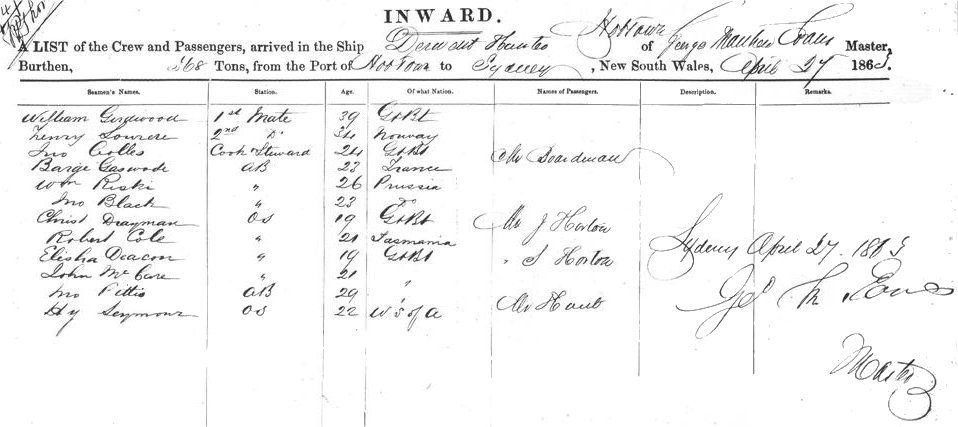 INWARD.
A LIST of the Crew and Passengers, arrived in the Ship Derwent Hunter HobTown of George Matthew Evans Master,
Burthen, 268 Tons, from the Port of HobTown to Sydney, New South Wales, April 27 1865.
Seamen's Names. Station. Age. Of what Nation. Names of Passengers. Description. Remarks.
William Girdwood 1st Mate 39 Gt Bt
Henry 2nd Do 34 Norway
Jno Colles Cook & Steward 24 Gt Bt Mr Boardman
Barge Gaswode AB 23 France
Wm Riski " 26 Prussia
Jno Black " 23 Do
Christ Drayman OS 19 Gt Bt Mr J Horton
Robert Cole " 21 Tasmania
Elisha Deacon " 19 Gt Bt " S Horton Sydney April 27. 1865
John McCare " 21 "
Jno Pittis AB 29 " Geo M Evans
Hy Seymour OS 22 W S of A Mr
Master